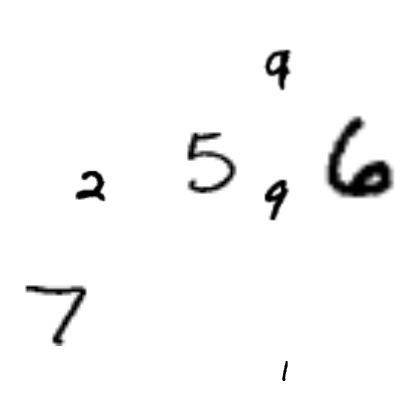 9
2 5 9 6
7
1